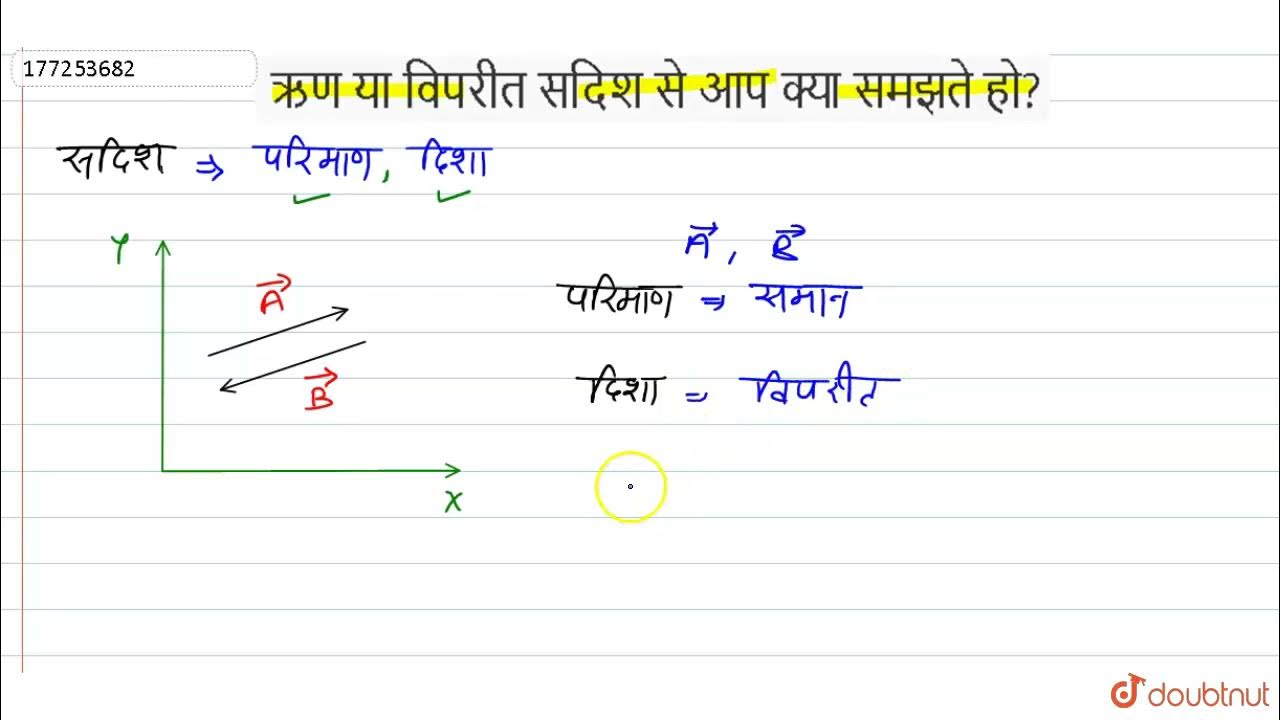 177253682
ऋण या विपरीत सदिश से आप क्या समझते हो?
सदिश ⇒ परिमाण, दिशा
Y
A⃗
B⃗
X
A⃗, B⃗
परिमाण ⇒ समान
दिशा = विपरीत
doubtnut